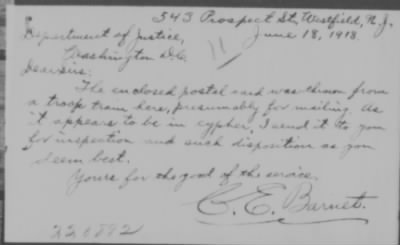 543 Prospect St, Westfield, N.J.
June 18, 1918.
Department of Justice,
11
Washington D.C.
Dear Sirs:
The enclosed postal card was thrown from
a troop train here, presumably for mailing. As
it appears to be in cypher, I send it to you
for inspection and such disposition as you
deem best.
Yours for the good of the service,
C. E. Barnet.
220892